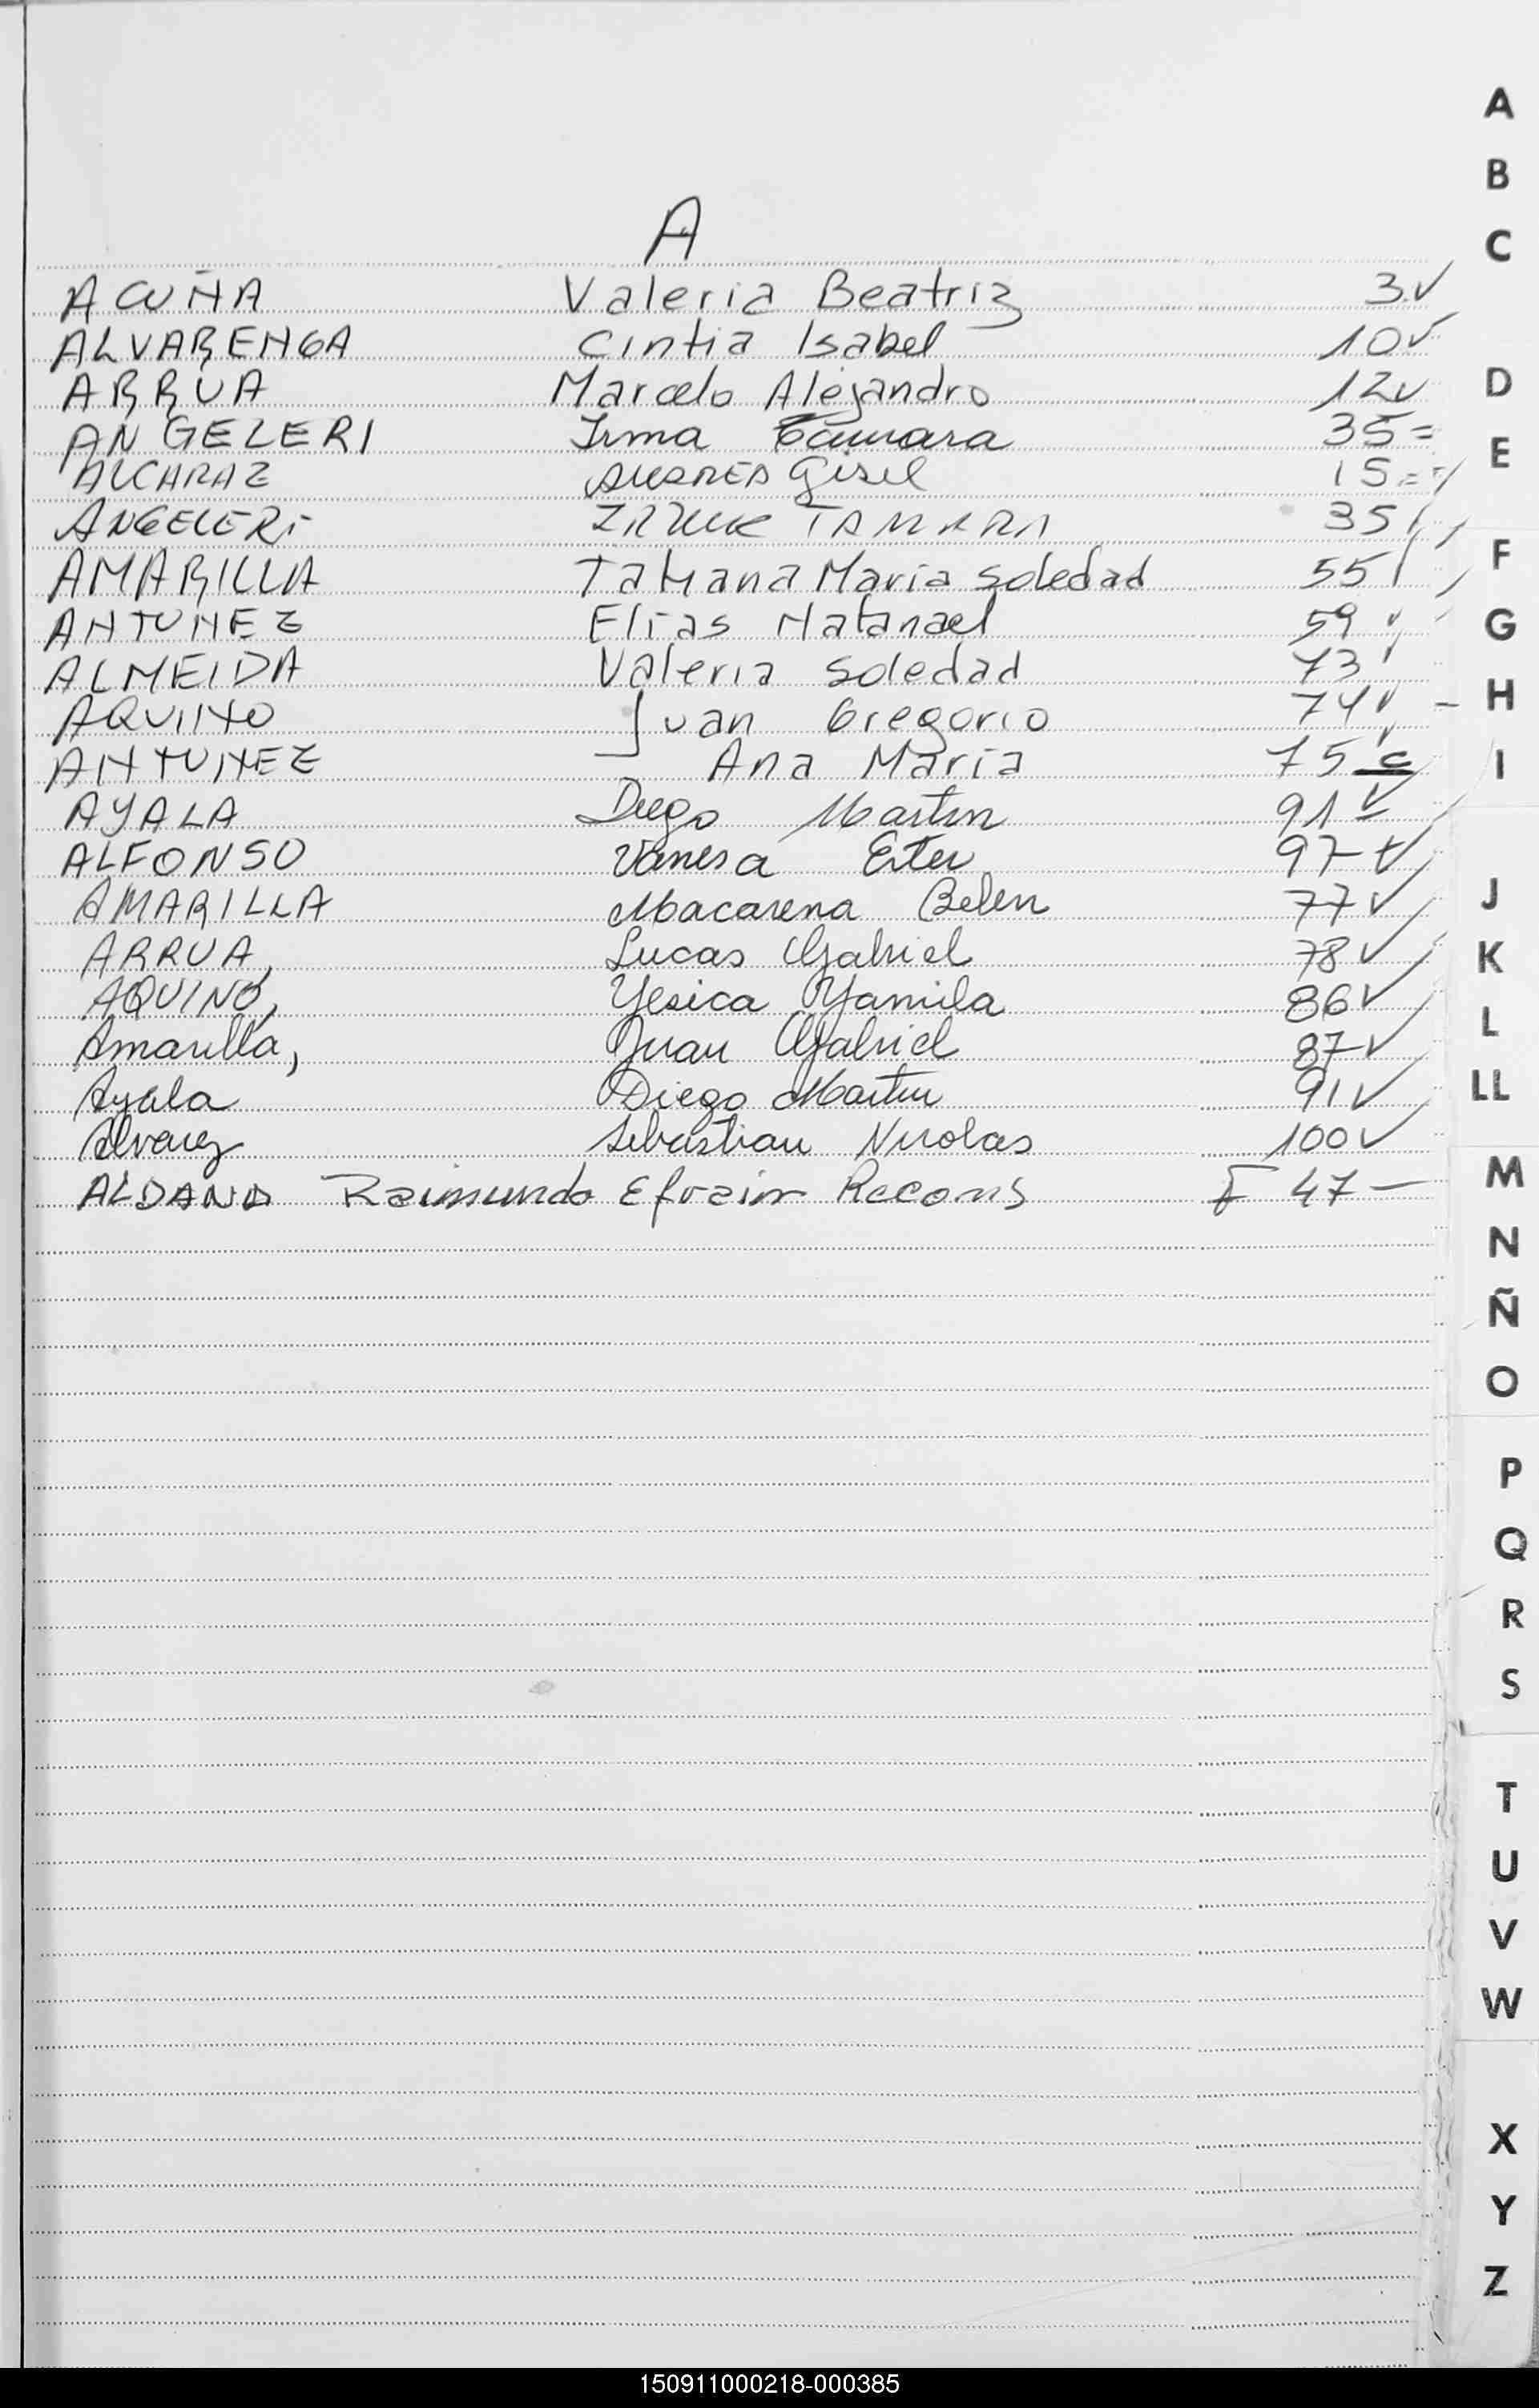 A
ACUÑA Valeria Beatriz 3 ✓
ALVARENGA Cintia Isabel 10 ✓
ARRUA Marcelo Alejandro 12 ✓
ANGELERI Irma Tamara 35 =
ALCARAZ Gisel 15 =
ANGELERI TAMARA 35
AMARILLA Tatiana Maria Soledad 55
ANTUNEZ Elias Natanael 59 ✓
ALMEIDA Valeria Soledad 73
AQUINO Juan Gregorio 74
ANTUNEZ Ana Maria 75
AYALA Diego Martin 91 ✓
ALFONSO Vanesa Ester 97 ✓
AMARILLA Macarena Belen 77 ✓
ARRUA, Lucas Gabriel 78 ✓
AQUINO, Yesica Yamila 86 ✓
Amarilla, Juan Gabriel 87 ✓
Ayala Diego Martin 91 ✓
Alvarez Sebastian Nicolas 100 ✓
ALDANA Raimundo Efrain Recons F 47 —
A
B
C
D
E
F
G
H
I
J
K
L
LL
M
N
Ñ
O
P
Q
R
S
T
U
V
W
X
Y
Z
150911000218-000385